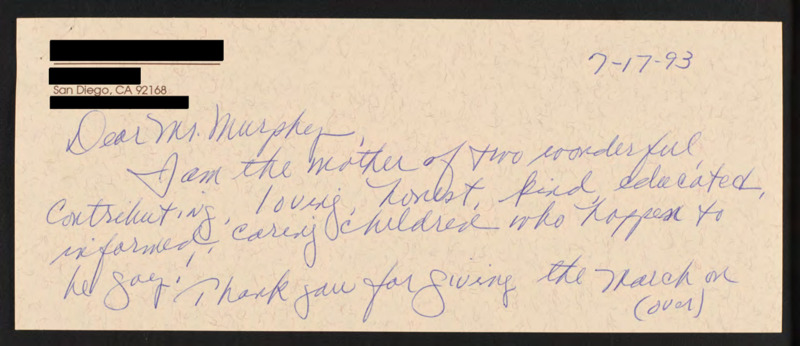 San Diego, CA 92168
7-17-93
Dear Mr. Murphey,
I am the mother of two wonderful,
contributing, loving, honest, kind, educated,
informed, caring children who happen to
be gay! Thank you for giving the March on
(over)